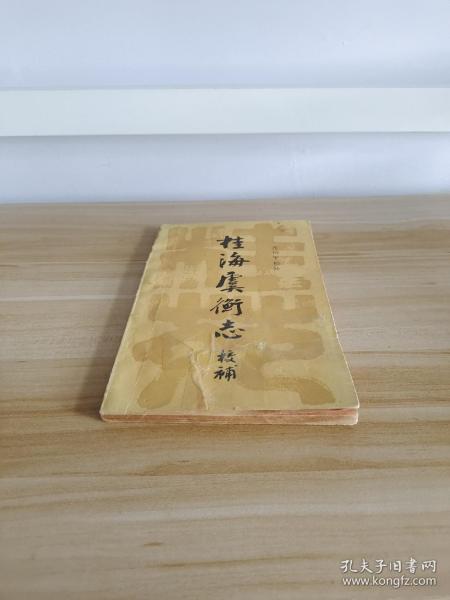 桂海虞衡志
校補
孔夫子旧书网
www.kongfz.com